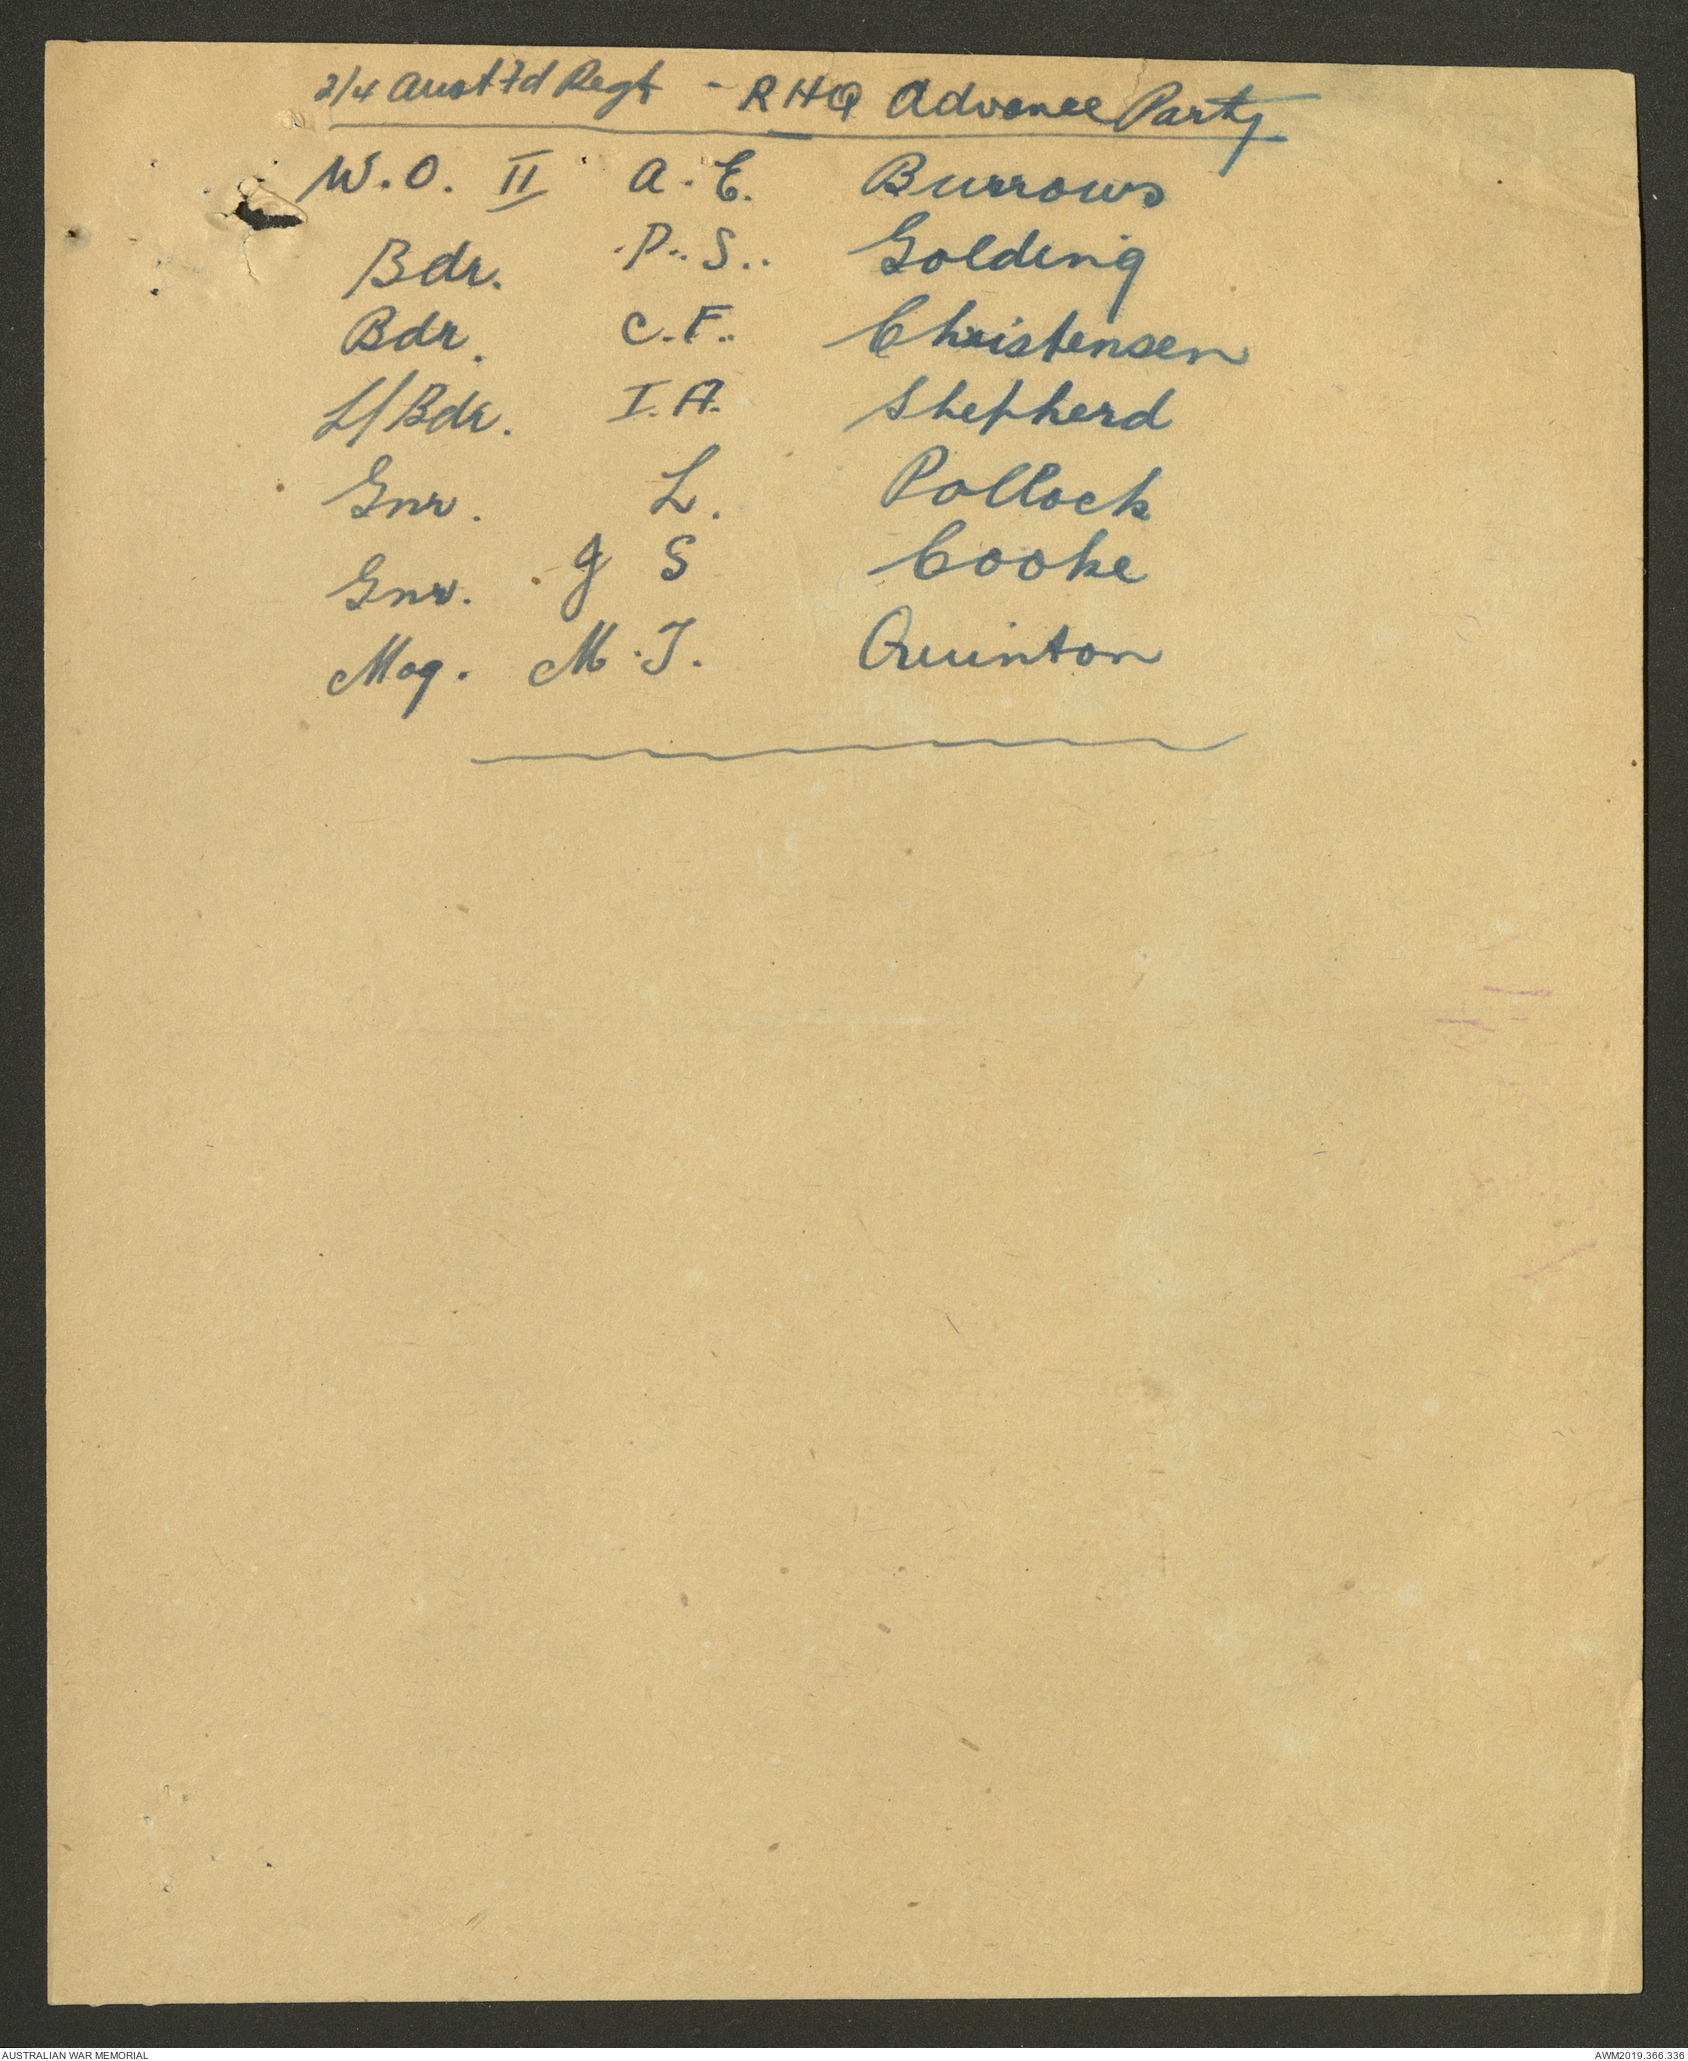 2/4 Aust Fd Regt - RHQ Advance Party
W.O. II A.E. Burrows
Bdr. P.S. Golding
Bdr. C.F. Christensen
L/Bdr. I.A. Shepherd
Gnr. L. Pollock
Gnr. J S Cooke
Mag. M.J. Quinton
AUSTRALIAN WAR MEMORIAL
AWM2019.366.336